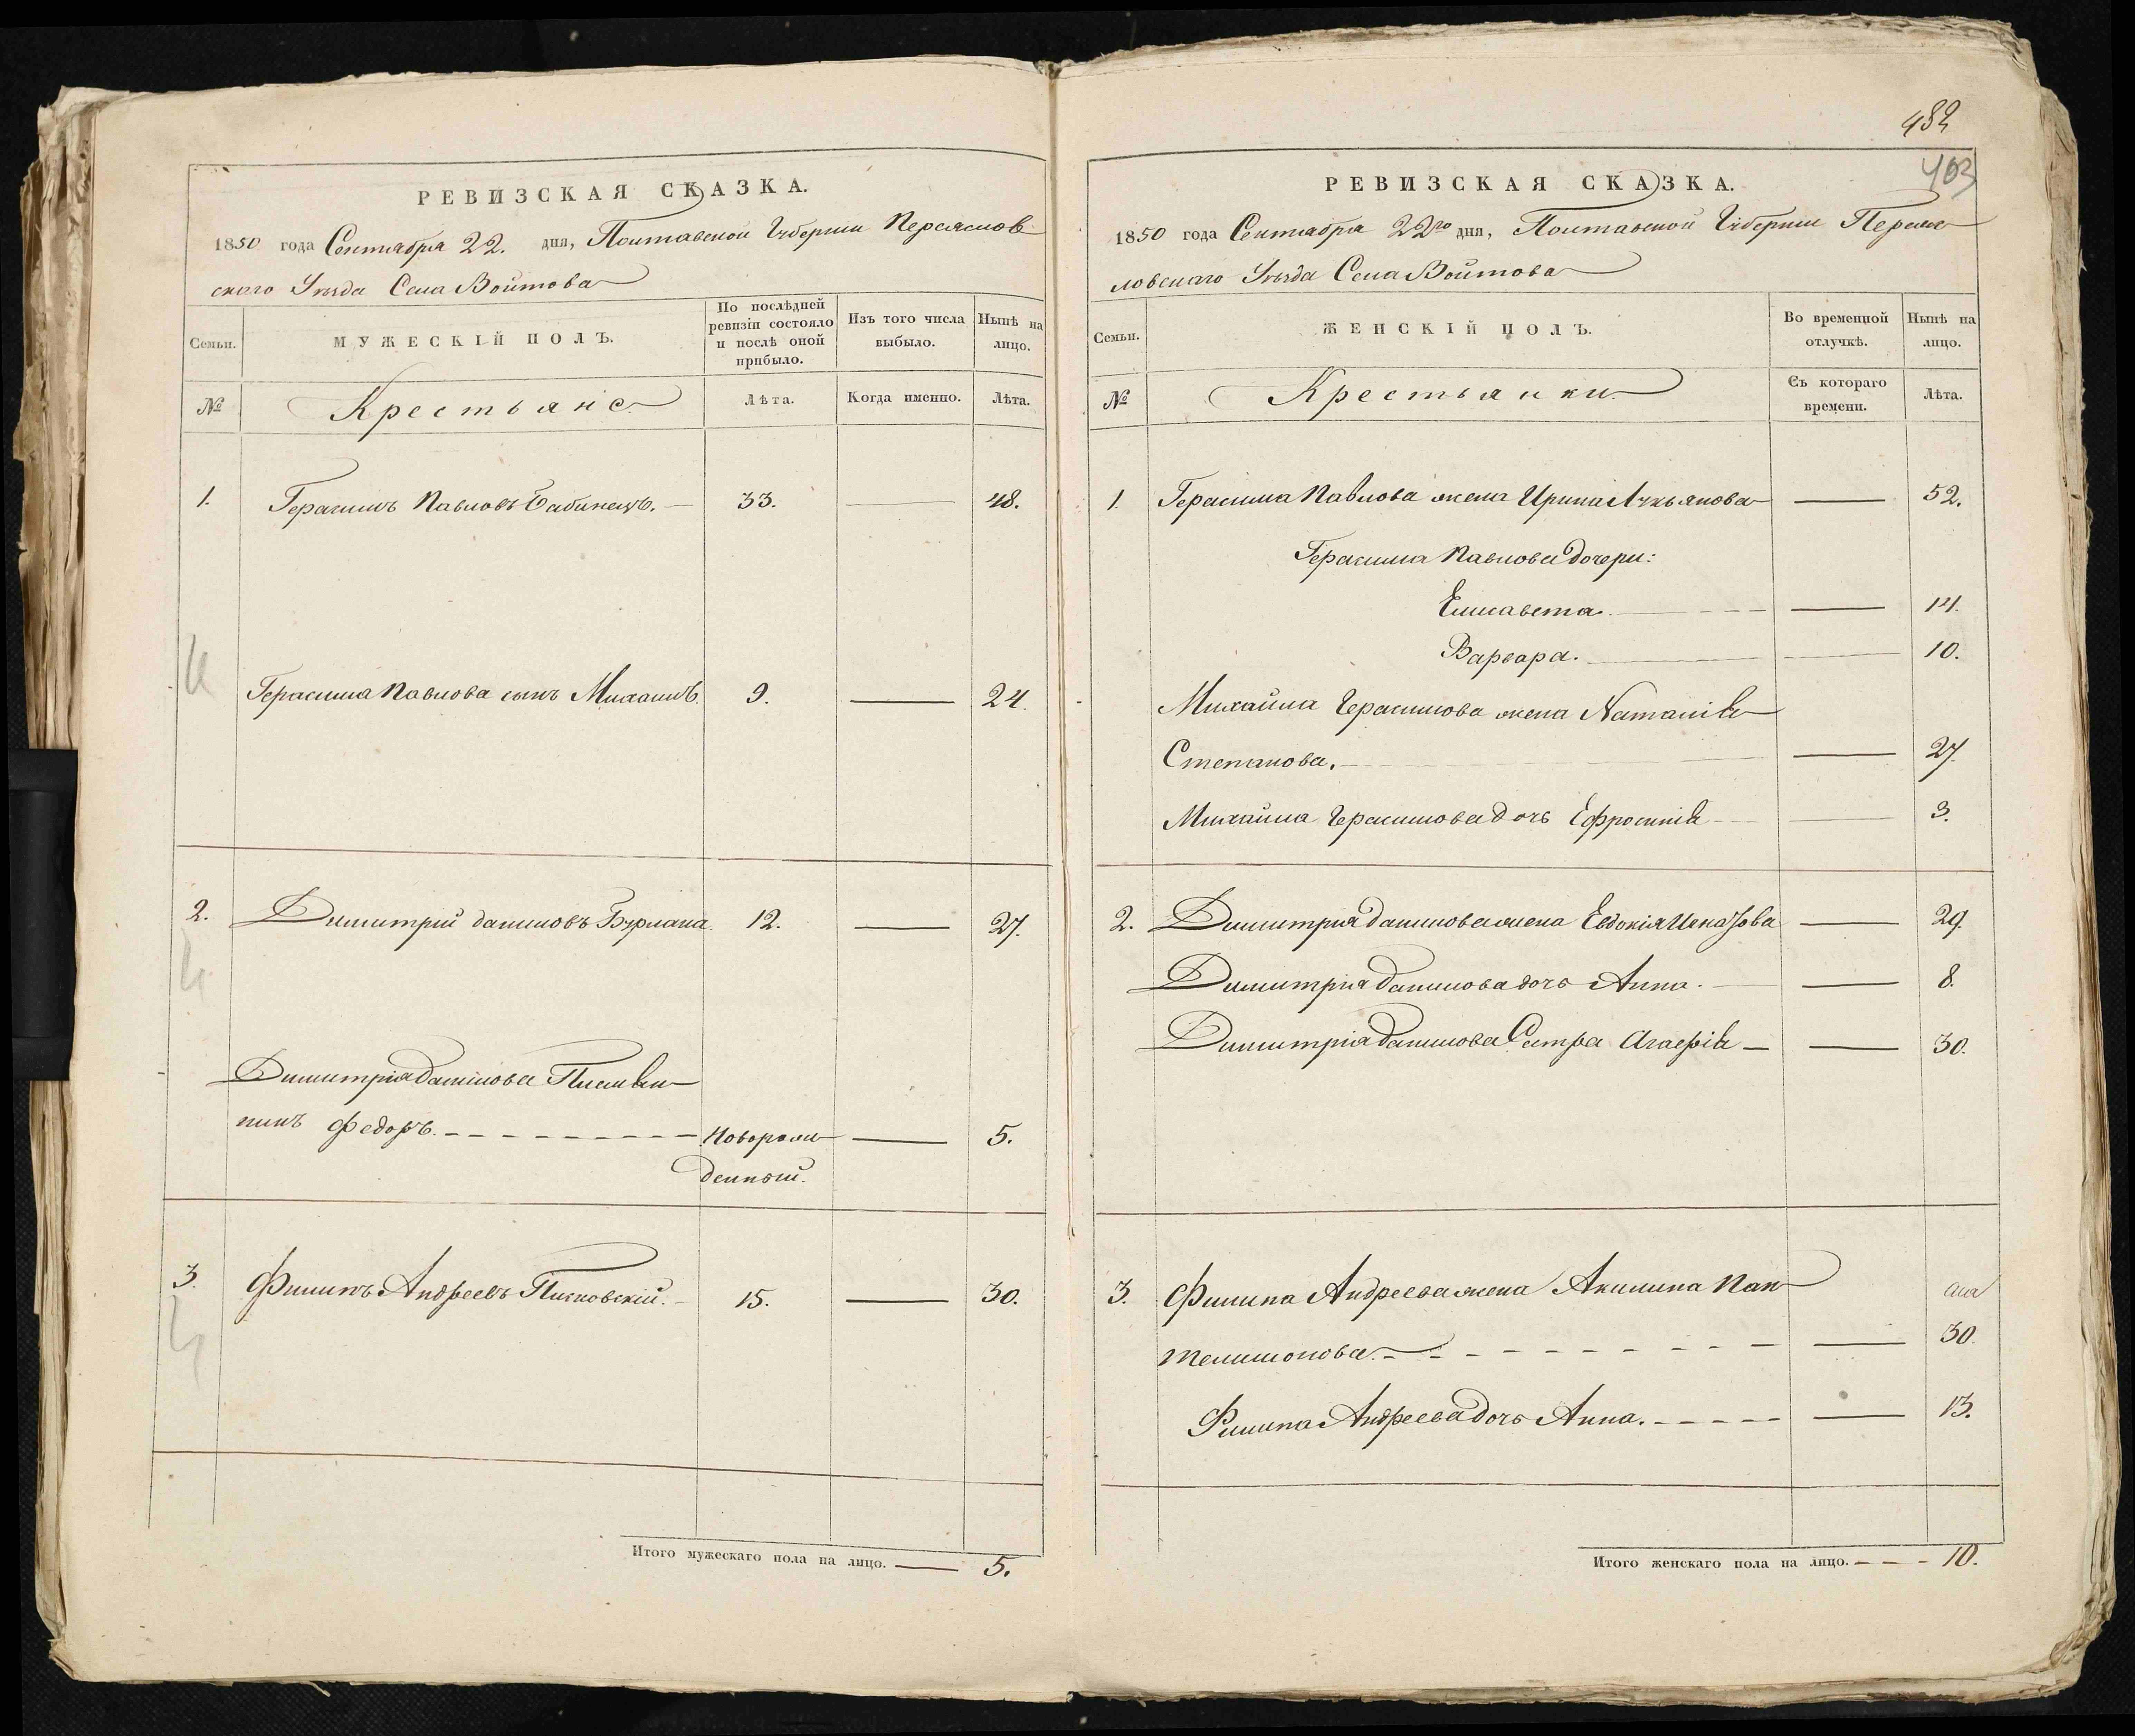 РЕВИЗСКАЯ СКАЗКА.
1850 года Сентября 22. дня, Полтавской Губернии Переяслов
скаго Уѣзда Села Войтова
Семьи.
МУЖЕСКІЙ ПОЛЪ.
По послѣдней
ревизіи состояло
и послѣ оной
прибыло.
Изъ того числа
выбыло.
Нынѣ на
лицо.
№
Крестьяне.
Лѣта.
Когда именно.
Лѣта.
1. Герасимъ Павловъ Бабинецъ. — 33. — 48.
Герасима Павлова сынъ Михаилъ. 9. — 24.
2. Димитрий Даниловъ Бурлака. 12. — 27.
Димитрія Данилова
нинъ Федоръ. — Новорож — 5.
денный.
3. Филипъ Андреевъ 15. — 30.
Итого мужескаго пола на лицо. — 5.
482
403
РЕВИЗСКАЯ СКАЗКА.
1850 года Сентября 22го дня, Полтавской Губернии Перияс
ловскаго Уѣзда Села Войтова
Семьи.
ЖЕНСКІЙ ПОЛЪ.
Во временной
отлучкѣ.
Нынѣ на
лицо.
№
Крестьянки.
Съ котораго
времени.
Лѣта.
1. Герасима Павлова жена Ирина Лукьянова — 52.
Герасима Павлова дочери:
Елисавета. — 14.
Варвара. — 10.
Михайла Герасимова жена Наталія
Степанова. — 27.
Михайла Герасимова дочь Ефросинія — 3.
2. Димитрия Данилова жена Евдокія — 29.
Димитрия Данилова дочь Анна. — 8.
Димитрія Данилова Сестра Агафія — 30.
3. Филипа Андреева жена Акилина Пан
телимонова. — 30.
Филипа Андреева дочь Анна. — 13.
Итого женскаго пола на лицо. — 10.